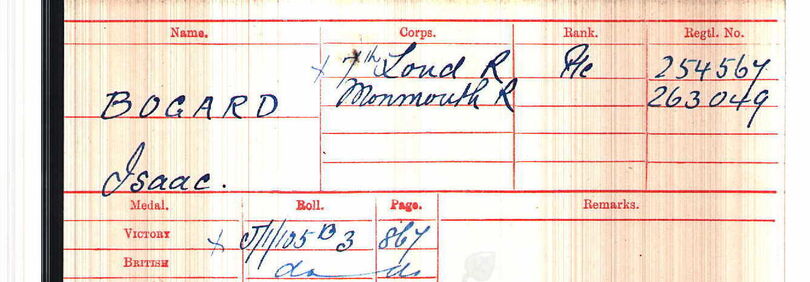 Name. Corps. Rank. Regtl. No.
x 7th Lond R Pte 254567
BOGARD Monmouth R 263049
Isaac.
Medal. Roll. Page. Remarks.
VICTORY x J/1/105 B 3 867
BRITISH do do